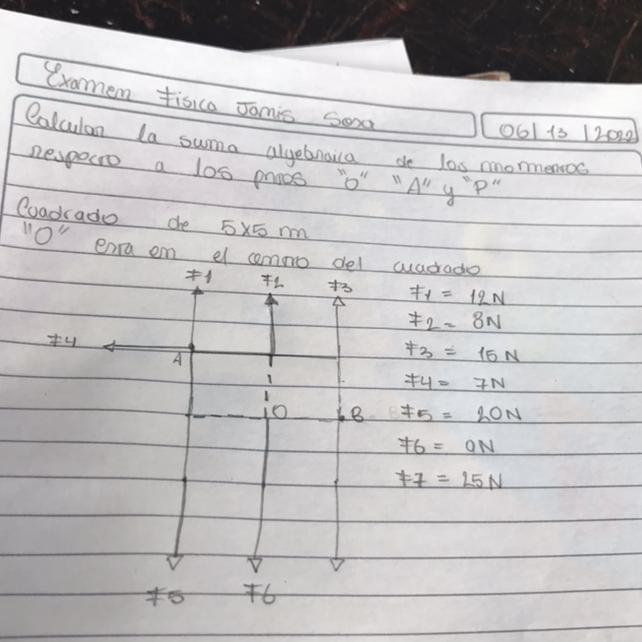 Examen Física Jamis Sosa
06/13/2022
Calcular la suma algebraica de los momentos
respecto a los pntos "O" "A" y "P"
Cuadrado de 5x5 m
"O" esta en el centro del cuadrado
F1 F2 F3
F1 = 12N
F2 = 8N
F4
A
F3 = 15N
F4 = 7N
O B
F5 = 20N
F6 = 9N
F7 = 25N
F5 F6